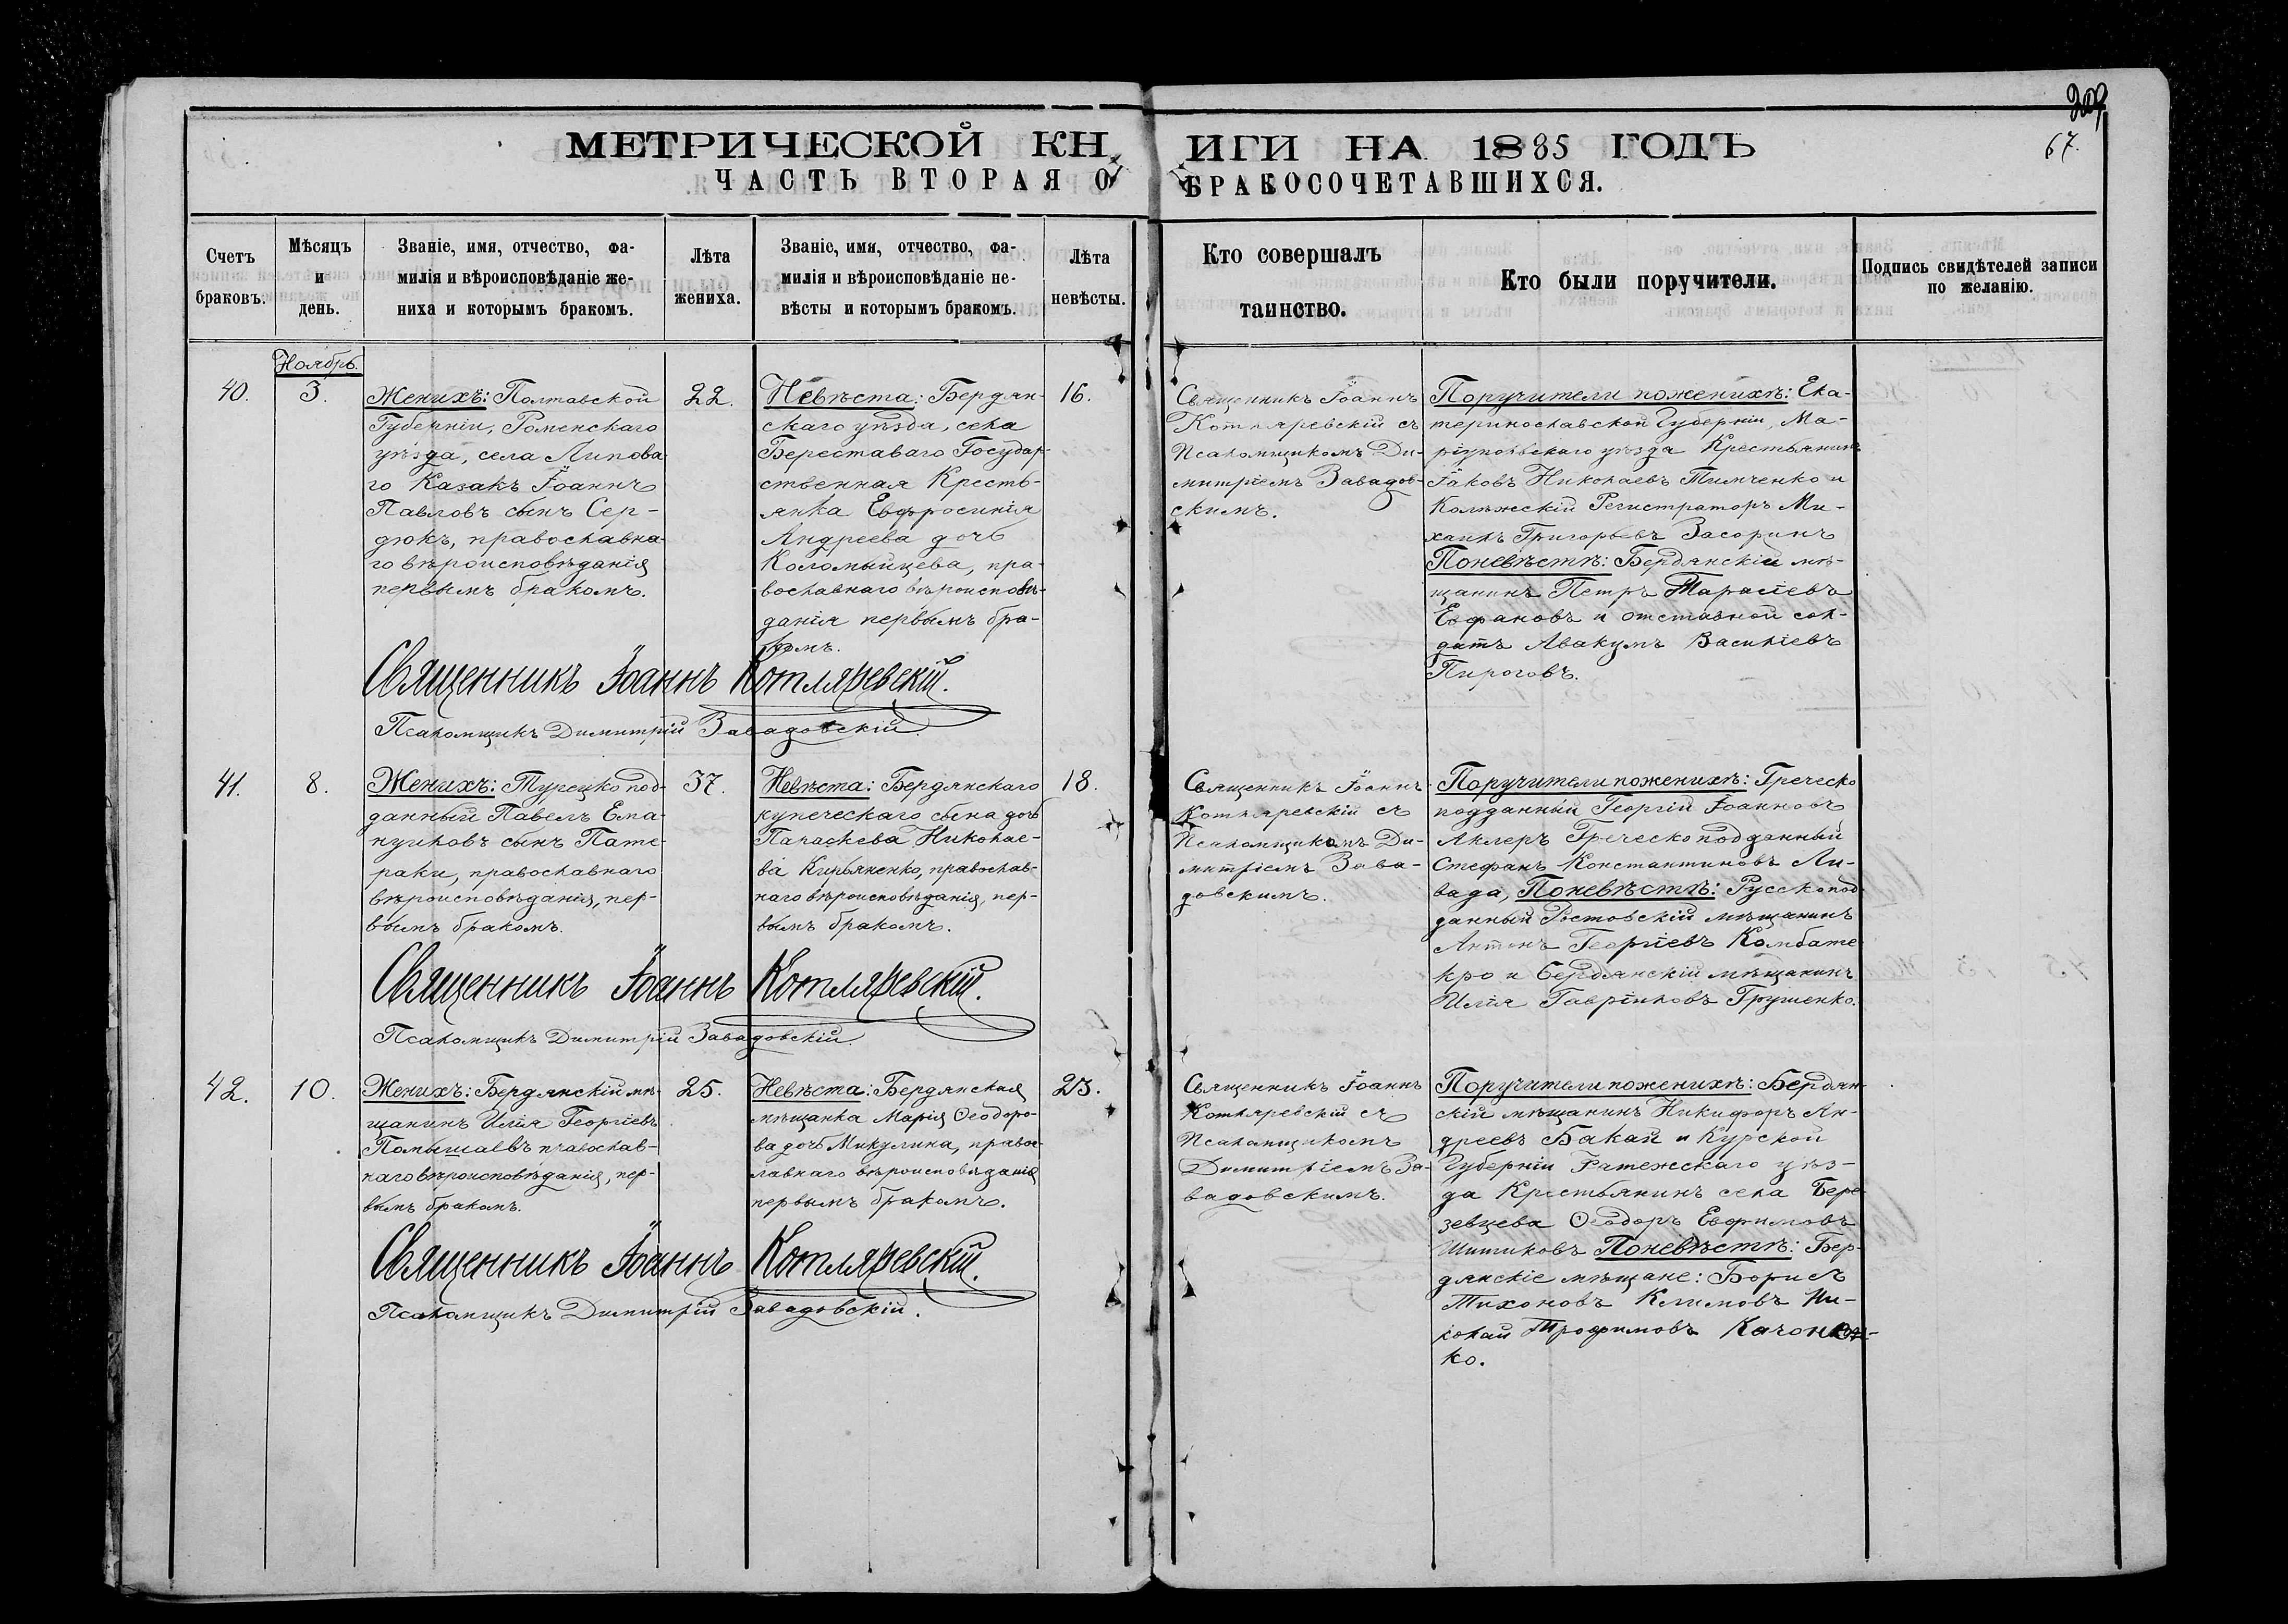 209
67.
МЕТРИЧЕСКОЙ КНИГИ НА 1885 ГОДЪ
ЧАСТЬ ВТОРАЯ О БРАКОСОЧЕТАВШИХСЯ.
Счетъ
браковъ.
Мѣсяцъ
и
день.
Званіе, имя, отчество, фа-
милія и вѣроисповѣданіе же-
ниха и которымъ бракомъ.
Лѣта
жениха.
Званіе, имя, отчество, фа-
милія и вѣроисповѣданіе не-
вѣсты и которымъ бракомъ.
Лѣта
невѣсты.
Кто совершалъ
таинство.
Кто были поручители.
Подпись свидѣтелей записи
по желанію.
Ноябрь.
40.
3.
Женихъ: Полтавской
Губерніи, Роменскаго
уѣзда, села Липова
го Казакъ Іоаннъ
Павловъ сынъ Сер-
дюкъ, православна-
го вѣроисповѣданія
первымъ бракомъ.
22.
Невѣста: Бердян-
скаго уѣзда, села
Береставаго Государ-
ственная Кресть-
янка Евфросинія
Андреева дочь
Коломыйцева, пра-
вославнаго вѣроисповѣ-
данія первымъ бра-
комъ.
16.
Священникъ Іоаннъ
Котляревскій съ
Псаломщикомъ Ди-
митріемъ Завадов-
скимъ.
Поручители по женихѣ: Ека-
теринославской Губерніи, Ма-
ріупольскаго уѣзда Крестьянинъ
Іаковъ Николаевъ Тимченко и
Колежскій Регистраторъ Ми-
хаилъ Григорьевъ Засоринъ
По невѣстѣ: Бердянскій мѣ-
щанинъ Петръ Тарасіевъ
Евфановъ и отставной сол-
датъ Авакумъ Василіевъ
Пироговъ.
Священникъ Іоаннъ Котляревскій.
Псаломщикъ Димитрій Завадовскій.
41.
8.
Женихъ: Турецко под-
данный Павелъ Ема-
нуиловъ сынъ Пате-
раки, православнаго
вѣроисповѣданія, пер-
вымъ бракомъ.
37.
Невѣста: Бердянскаго
купеческаго сына дочь
Параскева Николае-
ва Кирьяненко, православ-
наго вѣроисповѣданія, пер-
вымъ бракомъ.
18.
Священникъ Іоаннъ
Котляревскій съ
Псаломщикомъ Ди-
митріемъ Зава-
довскимъ.
Поручители по женихѣ: Греческо
подданный Георгій Іоанновъ
Аклеръ Греческо подданный
Стефанъ Константиновъ Ли-
вада, По невѣстѣ: Русско под-
данный Ростовскій мѣщанинъ
Антонъ Георгіевъ Комбате
кро и Бердянскій мѣщанинъ
Илія Гавріиловъ Грушенко.
Священникъ Іоаннъ Котляревскій.
Псаломщикъ Димитрій Завадовскій.
42.
10.
Женихъ: Бердянскій мѣ-
щанинъ Илія Георгіевъ
православ-
наго вѣроисповѣданія, пер-
вымъ бракомъ.
25.
Невѣста: Бердянская
мѣщанка Марія Ѳеодоро-
ва дочь Микулина, правос-
лавнаго вѣроисповѣданія
первымъ бракомъ.
23.
Священникъ Іоаннъ
Котляревскій съ
Псаломщикомъ
Димитріемъ За-
вадовскимъ.
Поручители по женихѣ: Бердян-
скій мѣщанинъ Никифоръ Ан-
дреевъ Бакай и Курской
Губерніи Фатежскаго уѣз-
да Крестьянинъ села Бере-
зевцева Ѳеодоръ Евфимовъ
Шитиковъ По невѣстѣ: Бер-
дянскіе мѣщане: Борисъ
Тихоновъ Климовъ Ни-
колай Трофимовъ
ко.
Священникъ Іоаннъ Котляревскій.
Псаломщикъ Димитрій Завадовскій.